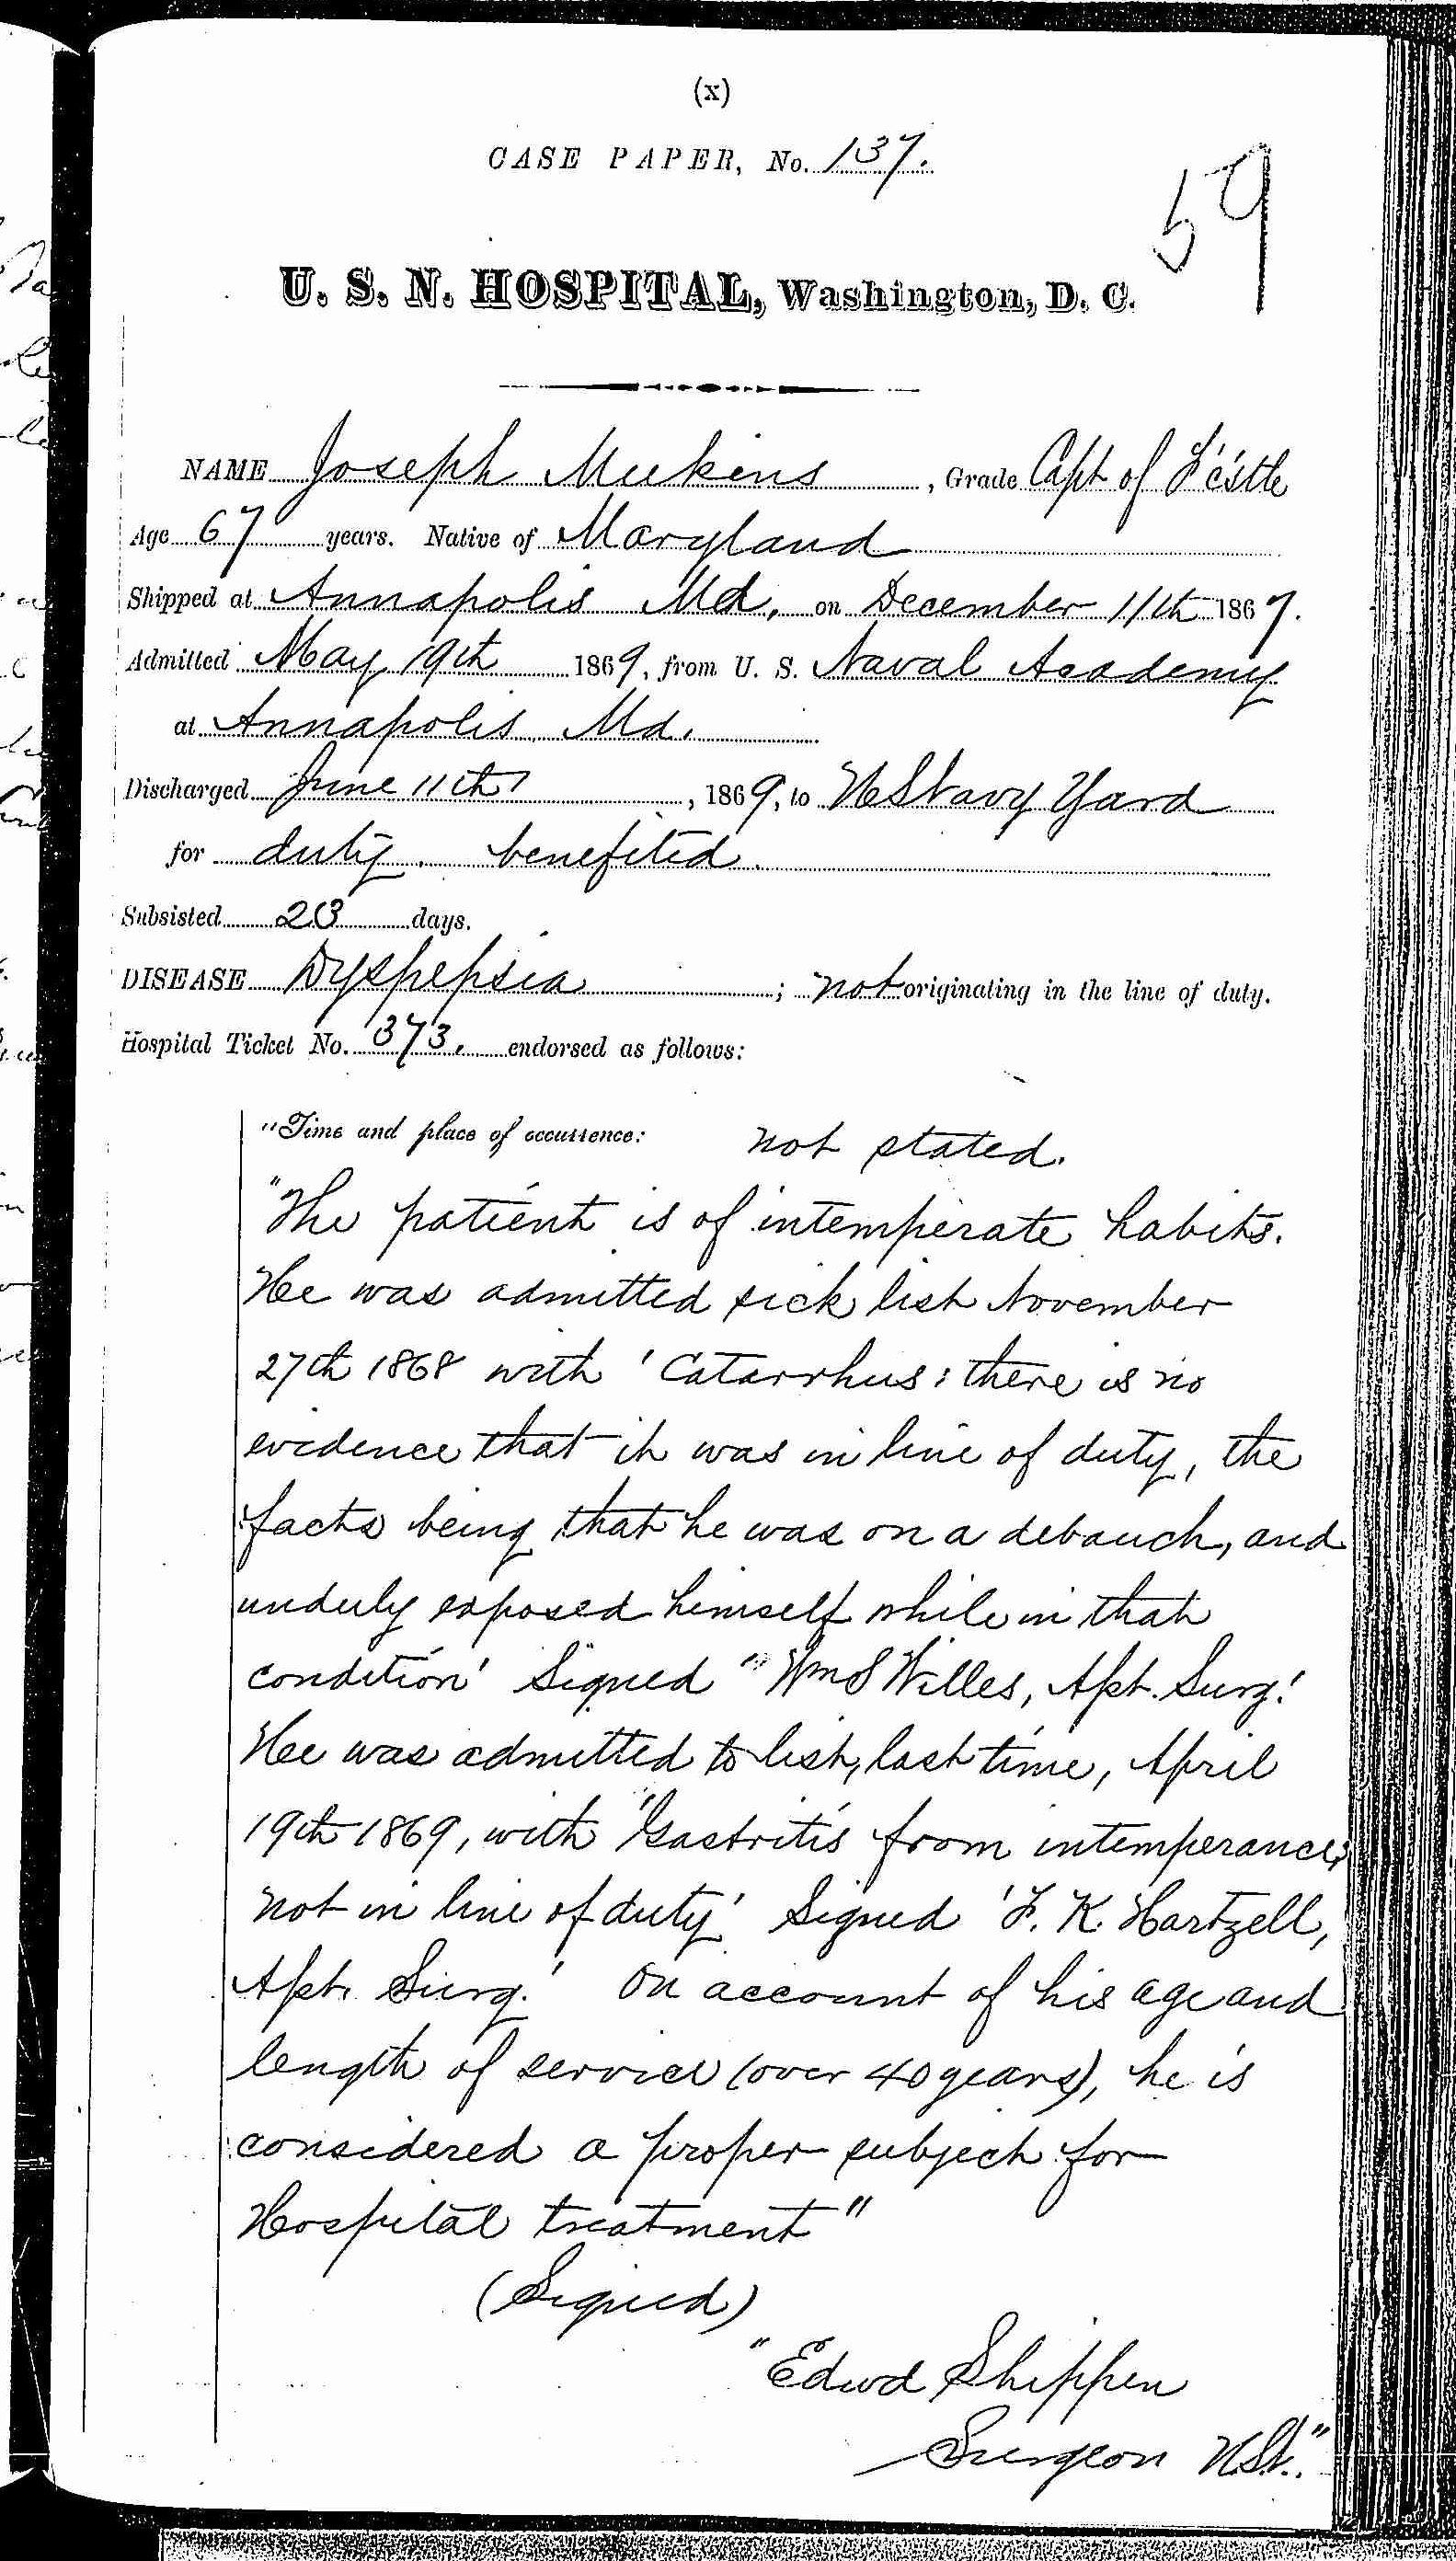 (x)
CASE PAPER, No. 137.
59
U. S. N. HOSPITAL, Washington, D. C.
NAME Joseph Meekins, Grade Capt of F'cstle
Age 67 years. Native of Maryland
Shipped at Annapolis Md, on December 11th 1867.
Admitted May 19th 1869, from U. S. Naval Academy
at Annapolis Md.
Discharged June 11th, 1869, to US Navy Yard
for duty. benefited.
Subsisted 23 days.
DISEASE Dyspepsia; not originating in the line of duty.
Hospital Ticket No. 373. endorsed as follows:
"Time and place of occurrence: not stated.
"The patient is of intemperate habits.
He was admitted sick list November
27th 1868 with 'Catarrhus: there is no
evidence that it was in line of duty, the
facts being that he was on a debauch, and
unduly exposed himself while in that
condition' Signed "Wm S Willes, Apt. Surg.'
He was admitted to list, last time, April
19th 1869, with 'Gastritis from intemperance,
not in line of duty'. Signed 'F. K. Hartzell,
Apt. Surg.' On account of his age and
length of service (over 40 years), he is
considered a proper subject for
Hospital treatment"
(Signed)
"Edwd Shippen
Surgeon U.S.N."